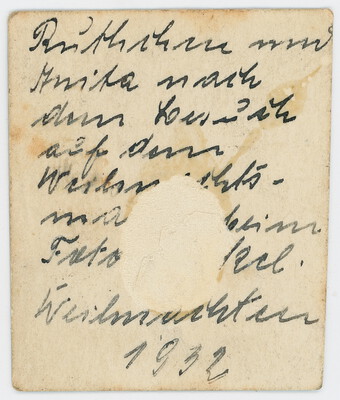 Ruthchen und
Anita nach
dem Besuch
auf dem
Weihnachts-
ma beim
Foto
Weihnachten
1932